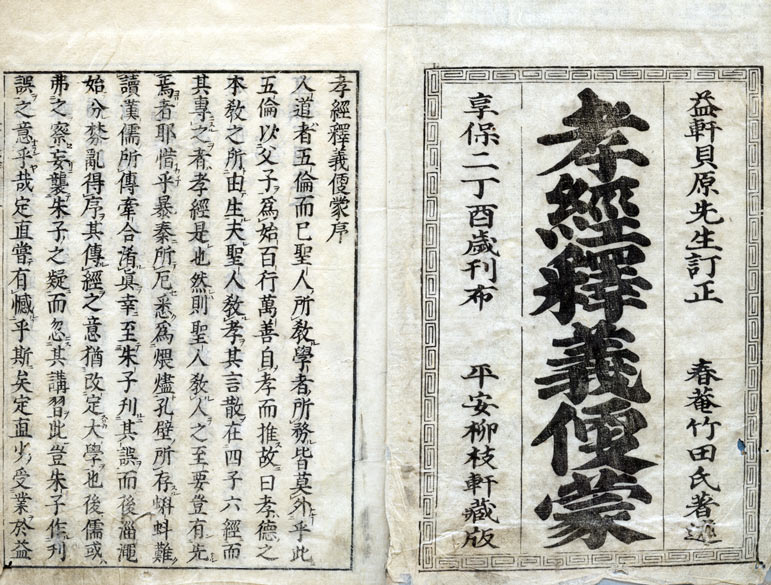 益軒貝原先生訂正 春菴竹田氏著述
孝經釋義便蒙
享保二丁酉歲刊布 平安柳枝軒藏版
孝經釋義便蒙序
人道者五倫而已聖人所敎學者所務皆莫外乎此
五倫以父子爲始百行萬善自孝而推故曰孝德之
本敎之所由生夫聖人敎孝其言散在四子六經而
其專之者孝經是也然則聖人敎人之至要豈有先
焉者耶惜乎暴秦所厄悉爲煨燼孔壁所存蝌蚪難
讀漢儒所傳牽合淆眞幸至朱子刋其誤而後淄澠
始分棼亂得序其傳經之意猶改定大學也後儒或
弗之察妄襲朱子之疑而忽其講習此豈朱子作刋
誤之意乎哉定直嘗有憾乎斯矣定直少受業於益